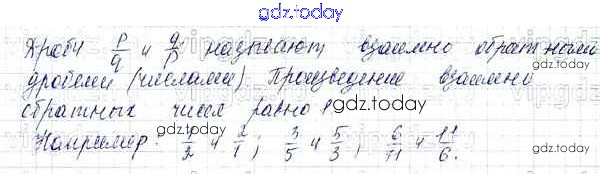 gdz.today
Дроби p/q и q/p называют взаимно обратными
gdz.today
дробями (числами). Произведение взаимно
обратных чисел равно 1.
gdz.today
Например: 1/2 и 2/1; 3/5 и 5/3; 6/11 и 11/6.
gdz.today
gdz.today